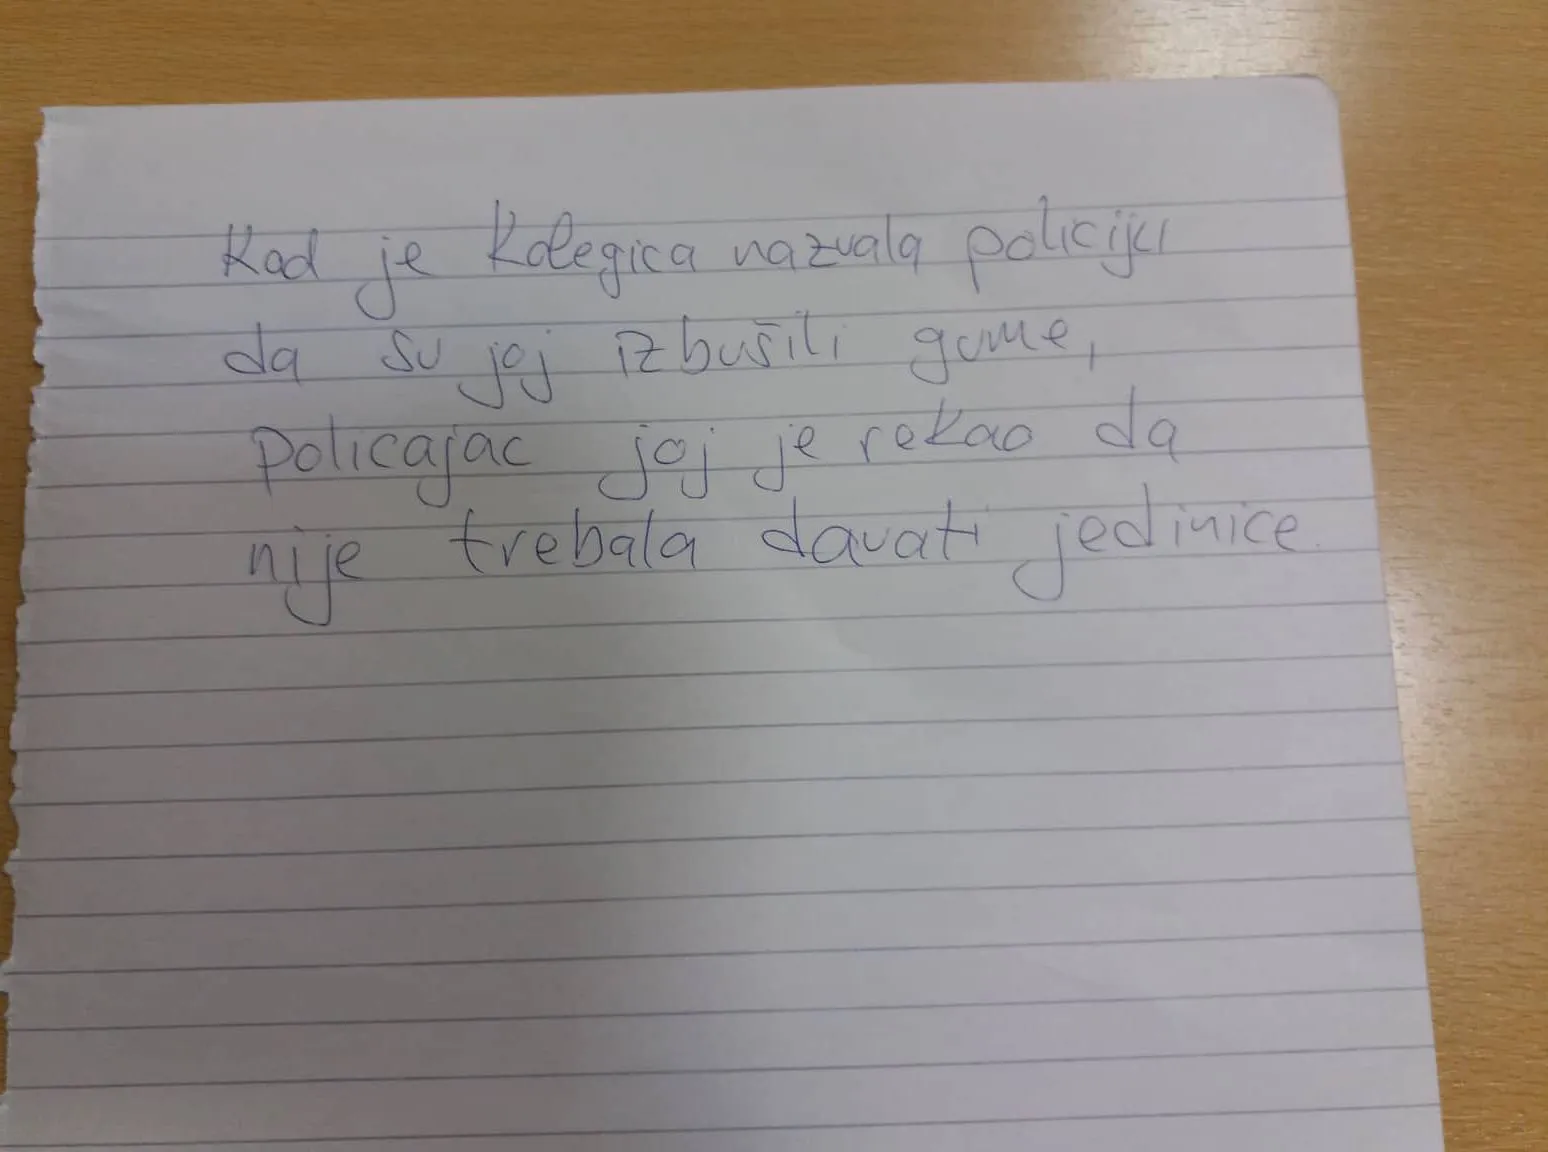 Kad je kolegica nazvala policiju
da su joj izbušili gume,
policajac joj je rekao da
nije trebala davati jedinice.